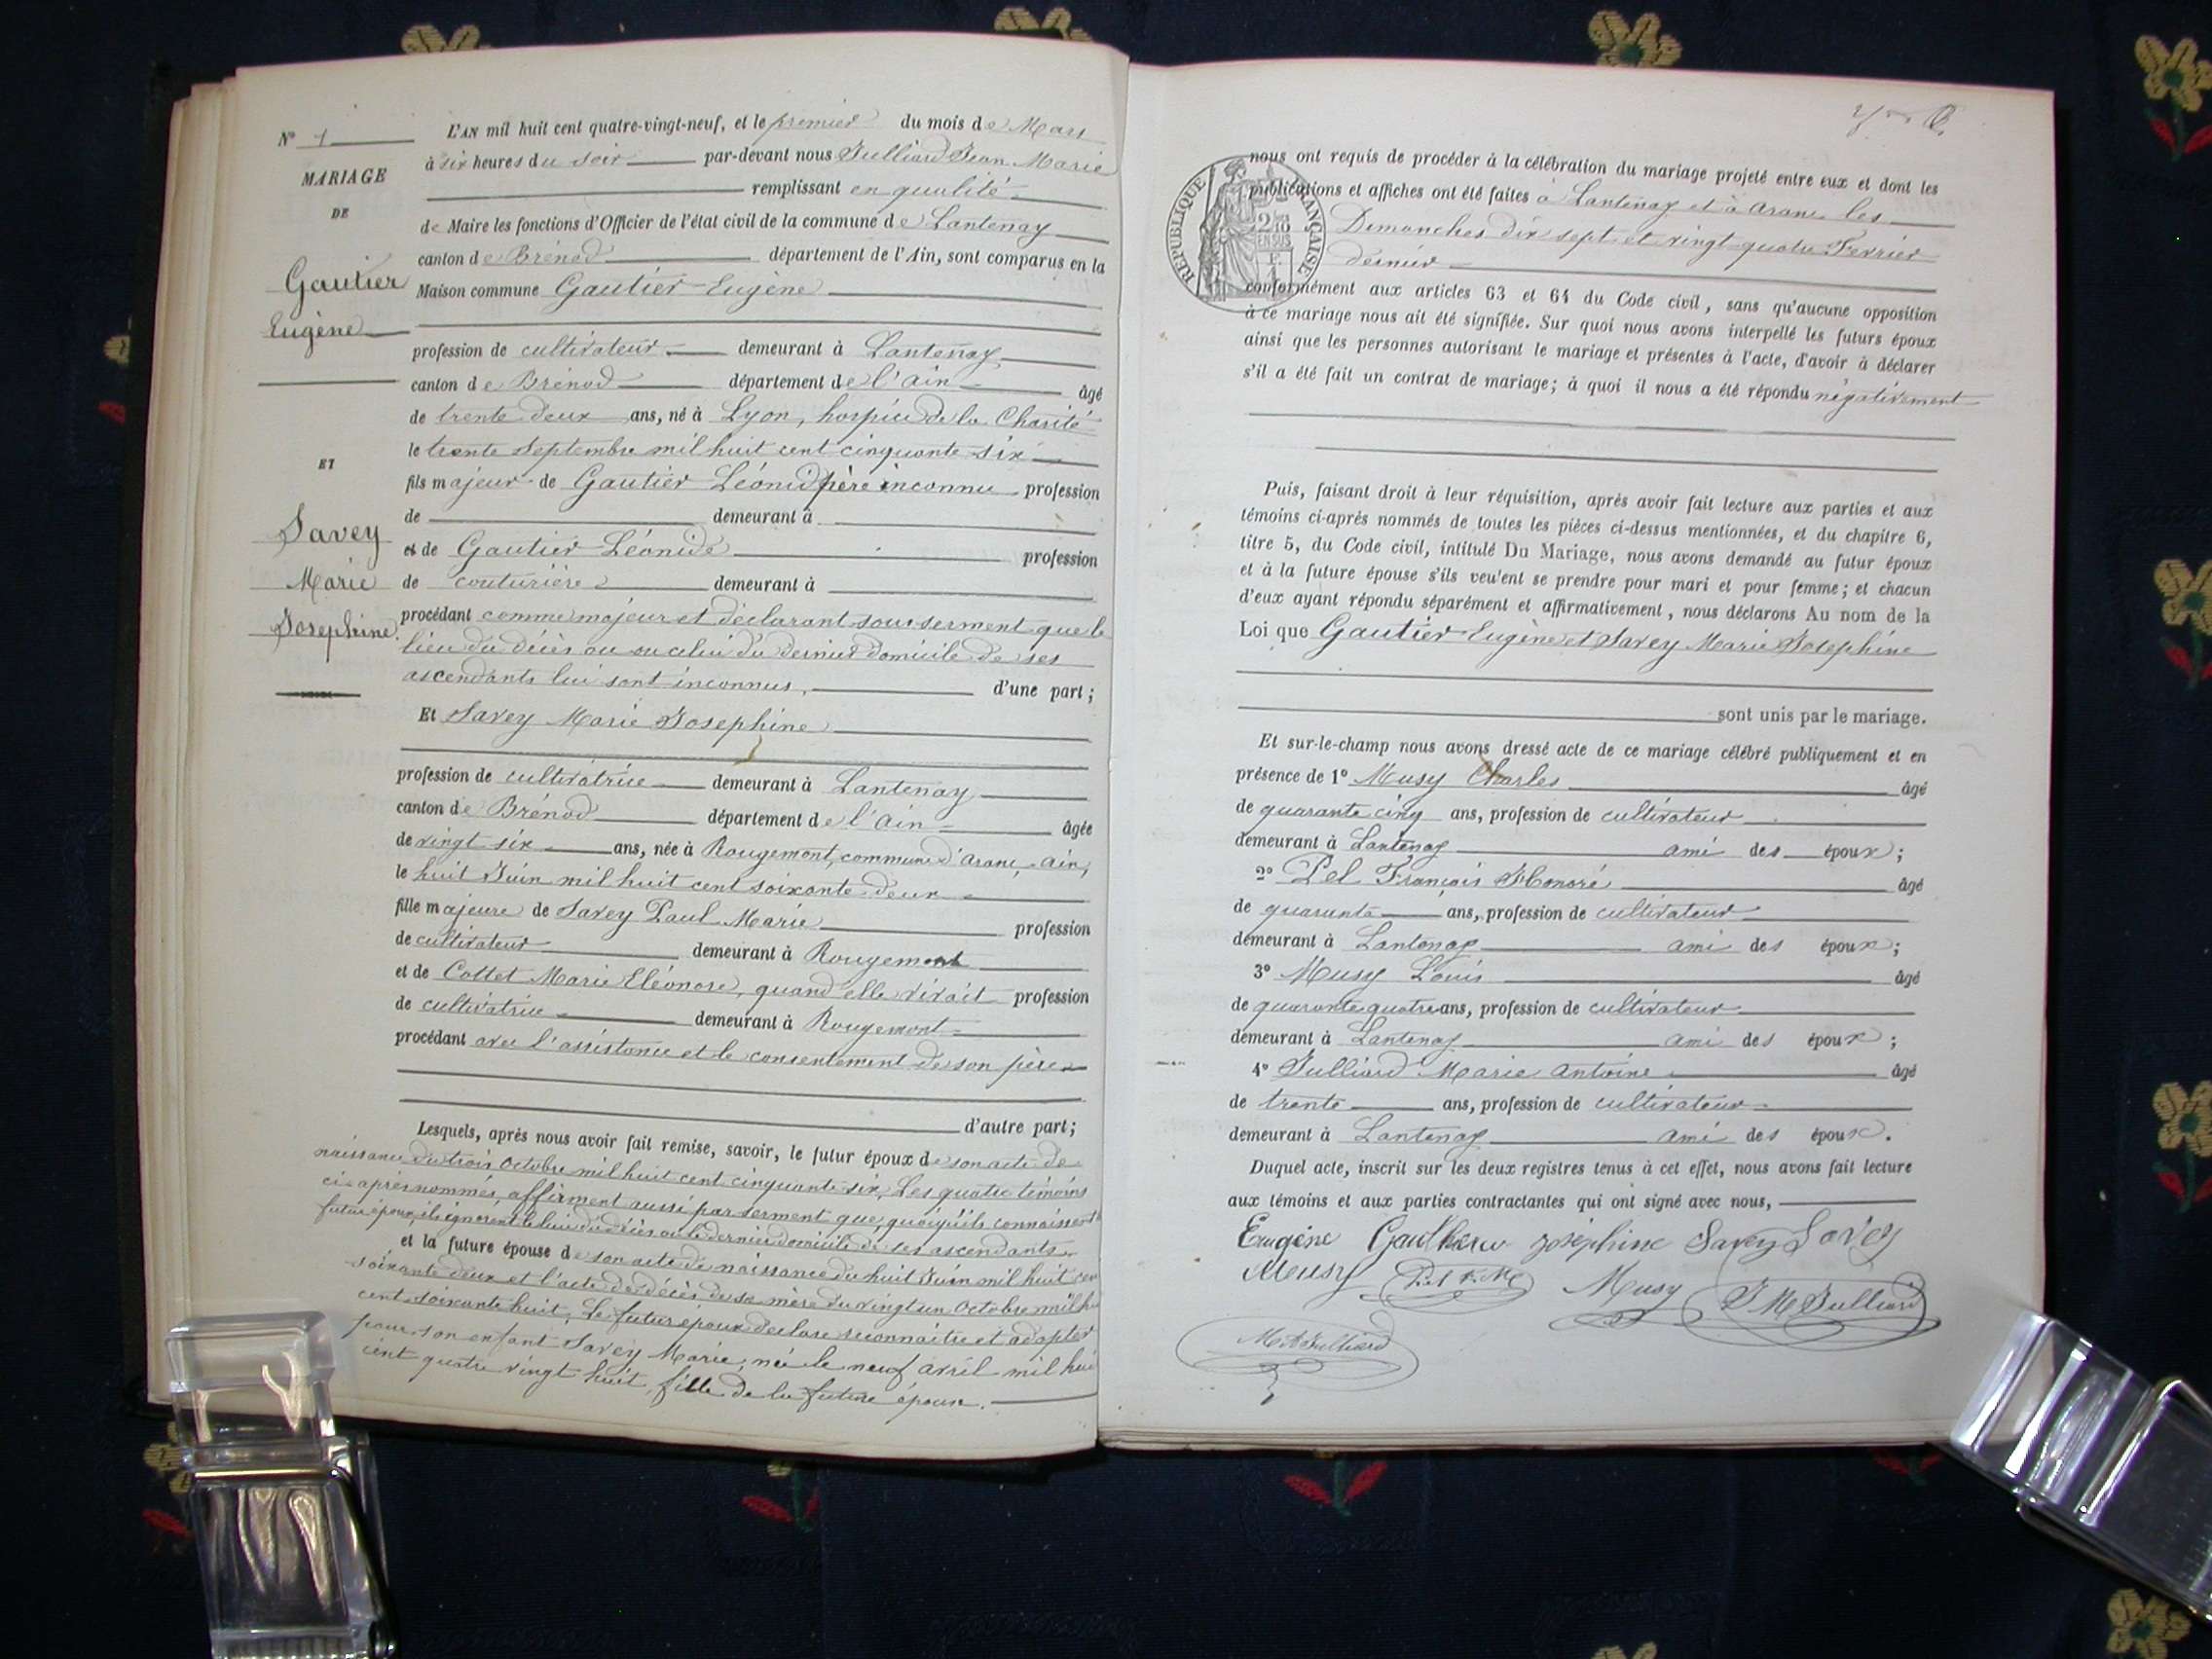 N° 1
MARIAGE
DE
Gautier
Eugène
ET
Savey
Marie
Josephine
L'AN mil huit cent quatre-vingt-neuf, et le premier du mois de Mars
à six heures du soir par-devant nous Julliard Jean Marie
remplissant en qualité
de Maire les fonctions d'Officier de l'état civil de la commune de Lantenay
canton de Brénod département de l'Ain, sont comparus en la
Maison commune Gautier Eugène
profession de cultivateur demeurant à Lantenay
canton de Brénod département de l'ain âgé
de trente deux ans, né à Lyon, hospice de la Charité
le trente Septembre mil huit cent cinquante six
fils majeur de Gautier Léonid père inconnu profession
de demeurant à
et de Gautier Léonide profession
de couturière demeurant à
procédant comme majeur et déclarant sous serment que le
lieu du décès ou ou celui du dernier domicile de ses
ascendants lui sont inconnus, d'une part;
Et Savey Marie Josephine
profession de cultivatrice demeurant à Lantenay
canton de Brénod département de l'ain âgée
de vingt six ans, née à Rougemont, commune d'aranc, ain,
le huit Juin mil huit cent soixante deux
fille majeure de Savey Paul Marie profession
de cultivateur demeurant à Rougemont
et de Cottet Marie Eléonore, quand elle vivait profession
de cultivatrice demeurant à Rougemont
procédant avec l'assistance et le consentement de son père
d'autre part;
Lesquels, après nous avoir fait remise, savoir, le futur époux de son acte de
naissance du trois Octobre mil huit cent cinquante six, Les quatre témoins
ci-après nommés, affirment aussi par serment que, quoiqu'ils connaissent
futur époux, ils ignorent le lieu du décès ou le dernier domicile de ses ascendants
et la future épouse de son acte de naissance du huit Juin mil huit cen
soixante deux et l'acte de décès de sa mère du vingt un Octobre mil hu
cent soixante huit, Le futur époux déclare reconnaître et adopter
pour son enfant Savey Marie, née le neuf avril mil hui
cent quatre vingt huit, fille de la future épouse.
RÉPUBLIQUE FRANÇAISE
2/10
EN SUS
nous ont requis de procéder à la célébration du mariage projeté entre eux et dont les
publications et affiches ont été faites à Lantenay et à aranc les
Dimanches dix sept et vingt-quatre Fevrier
dernier
conformément aux articles 63 et 64 du Code civil, sans qu'aucune opposition
à ce mariage nous ait été signifiée. Sur quoi nous avons interpellé les futurs époux
ainsi que les personnes autorisant le mariage et présentes à l'acte, d'avoir à déclarer
s'il a été fait un contrat de mariage; à quoi il nous a été répondu négativement
Puis, faisant droit à leur réquisition, après avoir fait lecture aux parties et aux
témoins ci-après nommés de toutes les pièces ci-dessus mentionnées, et du chapitre 6,
titre 5, du Code civil, intitulé Du Mariage, nous avons demandé au futur époux
et à la future épouse s'ils veu'ent se prendre pour mari et pour femme; et chacun
d'eux ayant répondu séparément et affirmativement, nous déclarons Au nom de la
Loi que Gautier Eugène et Savey Marie Josephine
sont unis par le mariage.
Et sur-le-champ nous avons dressé acte de ce mariage célébré publiquement et en
présence de 1° Musy Charles âgé
de quarante cinq ans, profession de cultivateur
demeurant à Lantenay ami des époux;
2° Pel François Honoré âgé
de quarante ans, profession de cultivateur
demeurant à Lantenay ami des époux;
3° Musy Louis âgé
de quarante quatre ans, profession de cultivateur
demeurant à Lantenay ami des époux;
4° Julliard Marie Antoine âgé
de trente ans, profession de cultivateur
demeurant à Lantenay ami des époux.
Duquel acte, inscrit sur les deux registres tenus à cet effet, nous avons fait lecture
aux témoins et aux parties contractantes qui ont signé avec nous,
Eugène Josephine Savey Savey
Musy Musy J M Julliard
M A Julliard